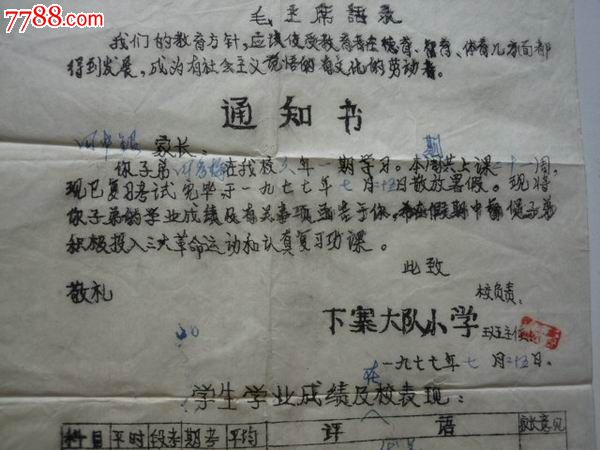 7788.com
毛主席語录
我们的教育方针,应该使受教育者在德育、智育、体育几方面都
得到发展,成为有社会主义觉悟的有文化的劳动者。
通知书
家长:
期
你子弟 在我校 年一期学习。本周共上课二十一周,
现已复习考试完毕于一九七七年七月二十五日散放暑假。现将
你子弟的学业成绩及有关事项函告于你,希在假期中 促子弟
积极投入三大革命运动和认真复习功课。
此致
敬礼
校负责:
下寨大队小学 班主任
一九七七年七月二十五日。
在
学生学业成绩及校表现:
科目 平时 段考 期考 平均 评语 家长意见